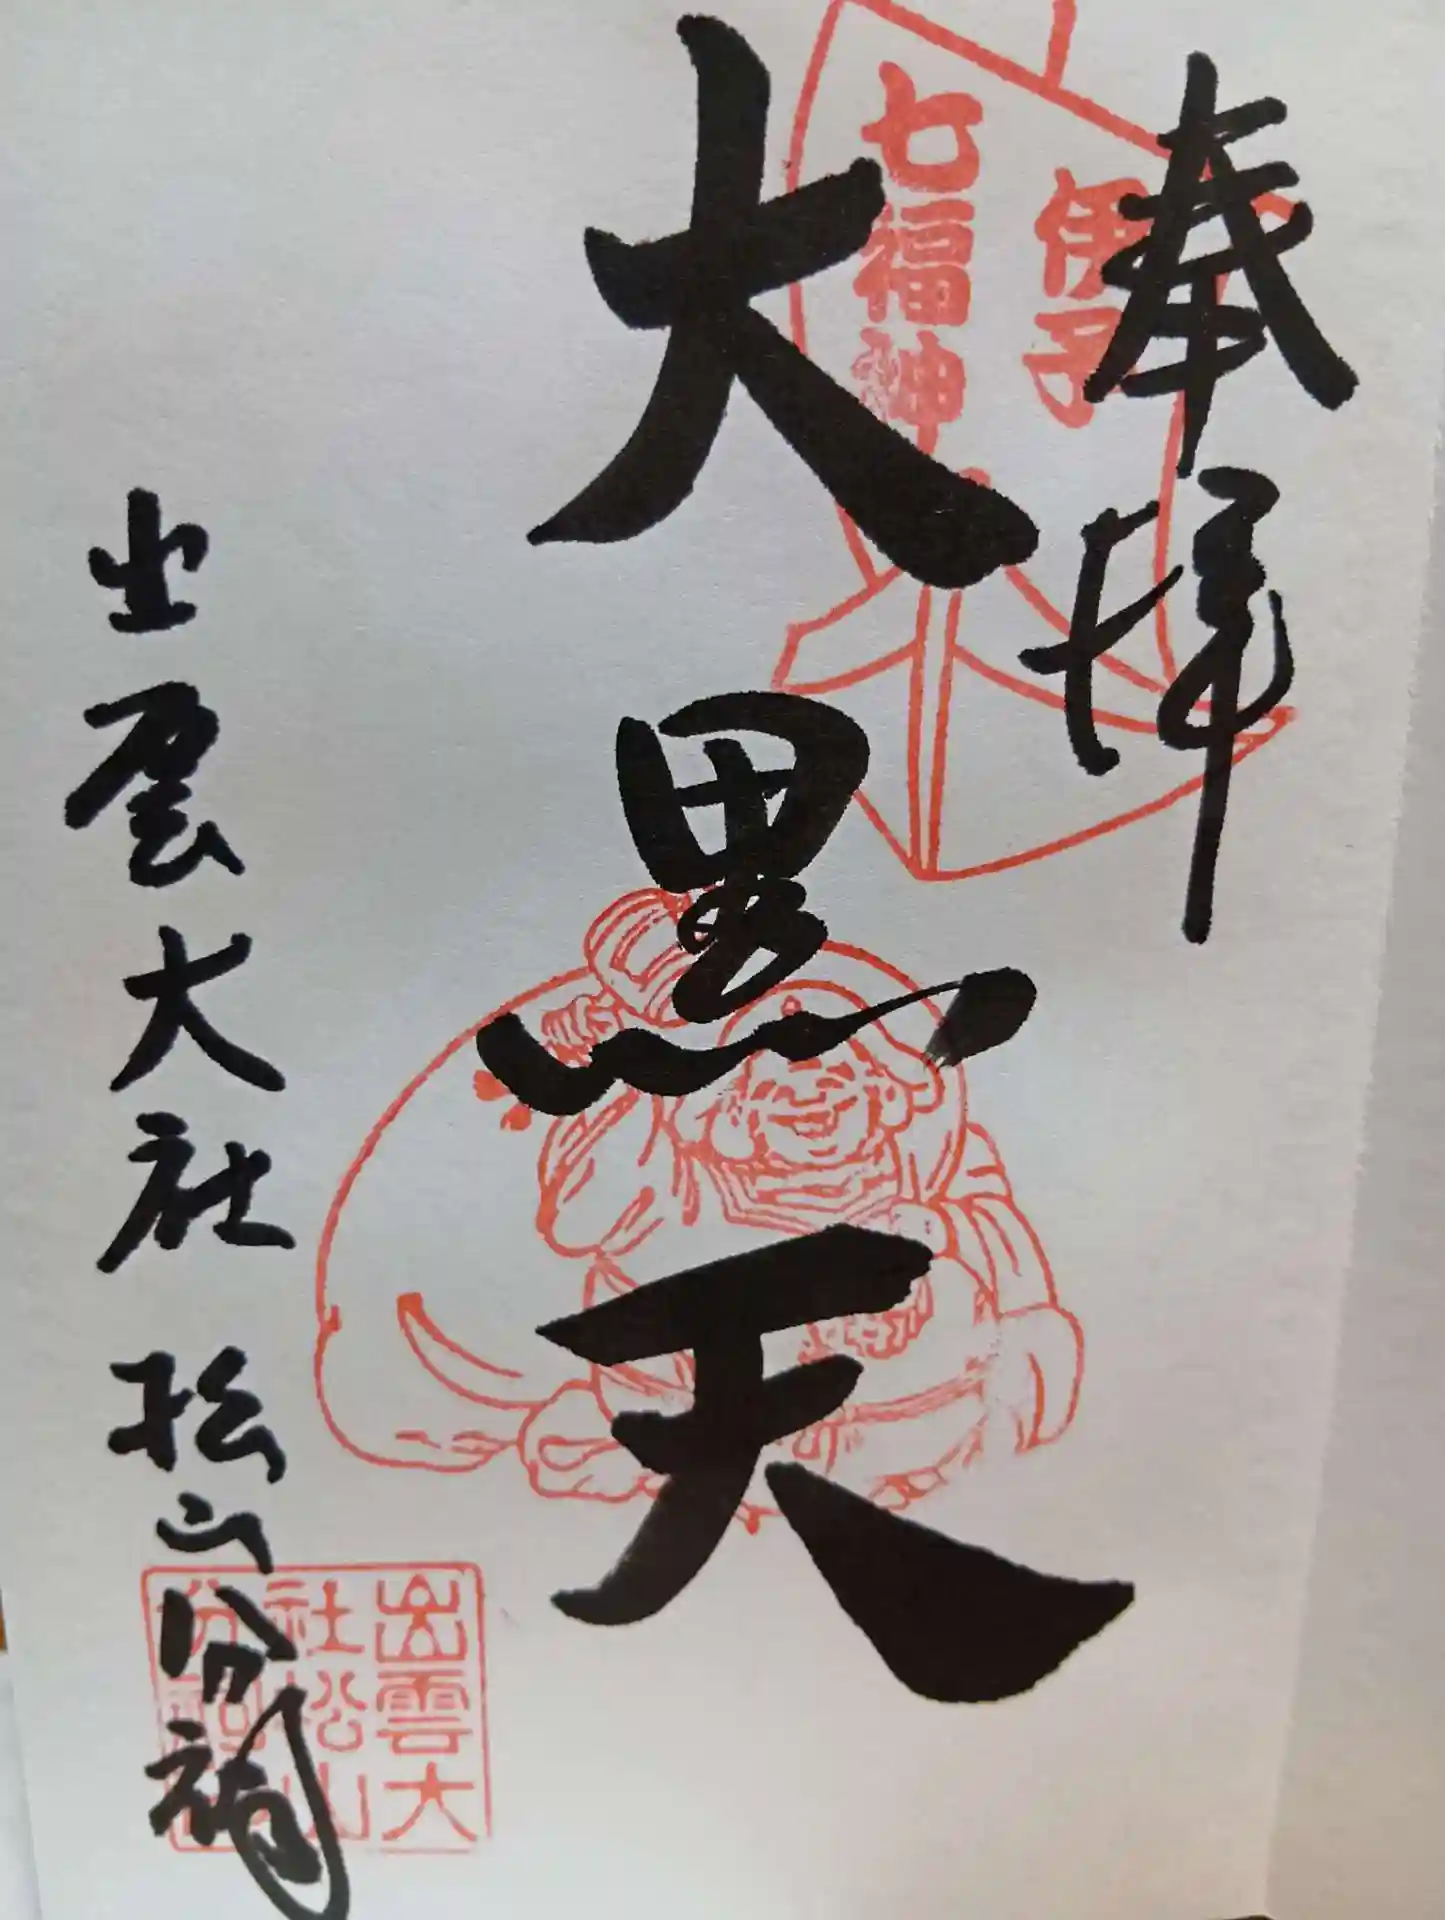 奉拝
伊予
七福神
大黒天
出雲大社松山分祠
出雲大
社松山
分祠